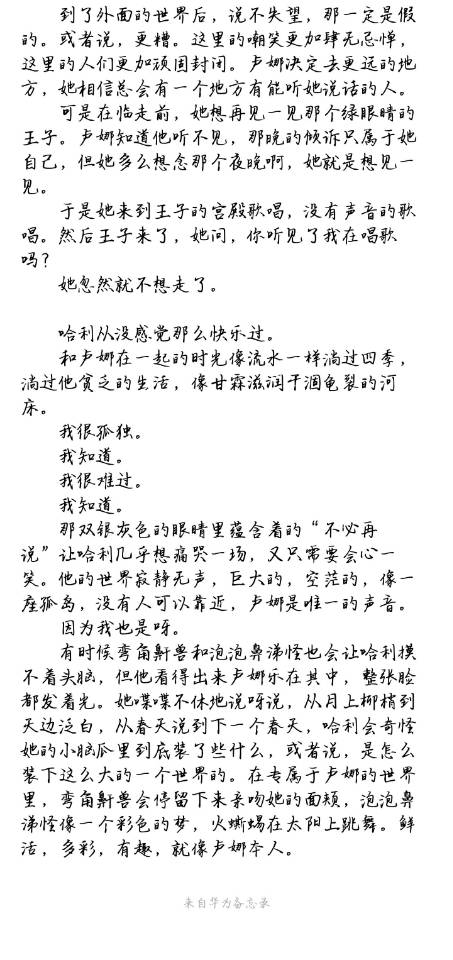 到了外面的世界后，说不失望，那一定是假
的。或者说，更糟。这里的嘲笑更加肆无忌惮，
这里的人们更加顽固封闭。卢娜决定去更远的地
方，她相信总会有一个地方有能听她说话的人。
可是在临走前，她想再见一见那个绿眼睛的
王子。卢娜知道他听不见，那晚的倾诉只属于她
自己，但她多么想念那个夜晚啊，她就是想见一
见。
于是她来到王子的宫殿歌唱，没有声音的歌
唱。然后王子来了，她问，你听见了我在唱歌
吗？
她忽然就不想走了。
哈利从没感觉那么快乐过。
和卢娜在一起的时光像流水一样淌过四季，
淌过他贫乏的生活，像甘霖滋润干涸龟裂的河
床。
我很孤独。
我知道。
我很难过。
我知道。
那双银灰色的眼睛里蕴含着的“不必再
说”让哈利几乎想痛哭一场，又只需要会心一
笑。他的世界寂静无声，巨大的，空茫的，像一
座孤岛，没有人可以靠近，卢娜是唯一的声音。
因为我也是呀。
有时候弯角鼾兽和泡泡鼻涕怪也会让哈利摸
不着头脑，但他看得出来卢娜乐在其中，整张脸
都发着光。她喋喋不休地说呀说，从月上柳梢到
天边泛白，从春天说到下一个春天，哈利会奇怪
她的小脑瓜里到底装了些什么，或者说，是怎么
装下这么大的一个世界的。在专属于卢娜的世界
里，弯角鼾兽会停留下来亲吻她的面颊，泡泡鼻
涕怪像一个彩色的梦，火蜥蜴在太阳上跳舞。鲜
活，多彩，有趣，就像卢娜本人。
来自华为备忘录